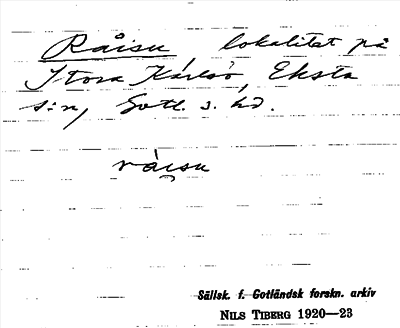 Råisu lokalitet på
Stora Karlsö, Eksta
s:n, Gotl. s. hd.
råisu
Sällsk. f. Gotländsk forskn. arkiv
NILS TIBERG 1920—23